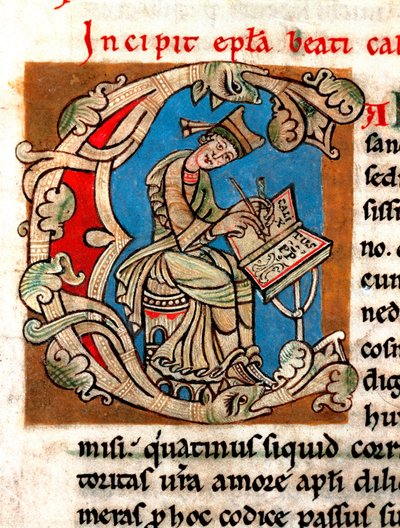 Incipit epła beati cal
A
CALIX
TUS
pp
san
sedi
sissi
no.
cun
ned
cosm
dig
hu
misi. q̃atinus siquid corr
toritas ur̃a amore apłi dili
meras ꝑ hoc codice passus su